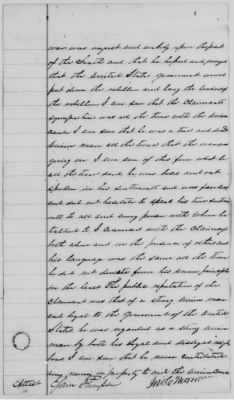 war was unjust and entirely upon the part
of the South and that he hoped and prayed
that the United States government would
put down the rebellion and hang the leaders of
the rebellion I am sure that the Claimants
sympathies was all the time with the Union
cause I am sure that he was a true and
Union man all the time that the war was
going on I am sure of this from what he
all the time said he was bold and out
spoken in his sentiments and was fearless
and did not hesitate to speak his true senti
ments to all and every person with whom he
talked to I conversed with the Claimant
both alone and in the presence of others but
his language was the same all the time
he did not deviate from his Union principles
in the least The public reputation of the
Claimant was that of a strong Union man
and loyal to the Government of the United
States he was regarded as a strong Union
man by both the loyal and disloyal
sons I am sure that he never contributed
any money or property to aid the
Attest